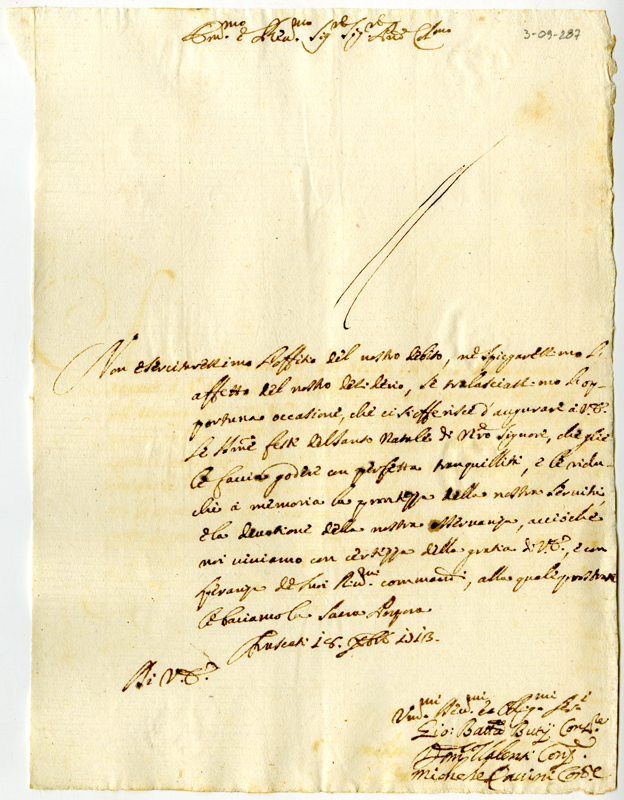 Em.mo e Rev.mo Sig.re Sig.re Pad.e Col.mo
3-09-287
Non esercitaressimo l'offitio del nostro debito, nè spiegaressimo l'
affetto del nostro desiderio, se tralasciassimo l'op-
portuna occasione, che ci s'offerisce d'augurare à V.E.
le S.me feste del Santo Natale di N.ro Signore, che glie
le faccia godere con perfetta tranquillità, e le ridu-
chi à memoria la prontezza della nostra servitù,
e la devotione della nostra osservanza, acciòche
noi viviamo con certezza della gratia di V.E., e con
speranza de suoi Riv.mi commandi, alla quale prostrati
le baciamo la Sacra Porpora
Frascati 18. Xbre 1713.
Di V.E.
Um.mi Dev.mi et Oblig.mi Ser.
Gio: Batta Butij Conf.re
Michele